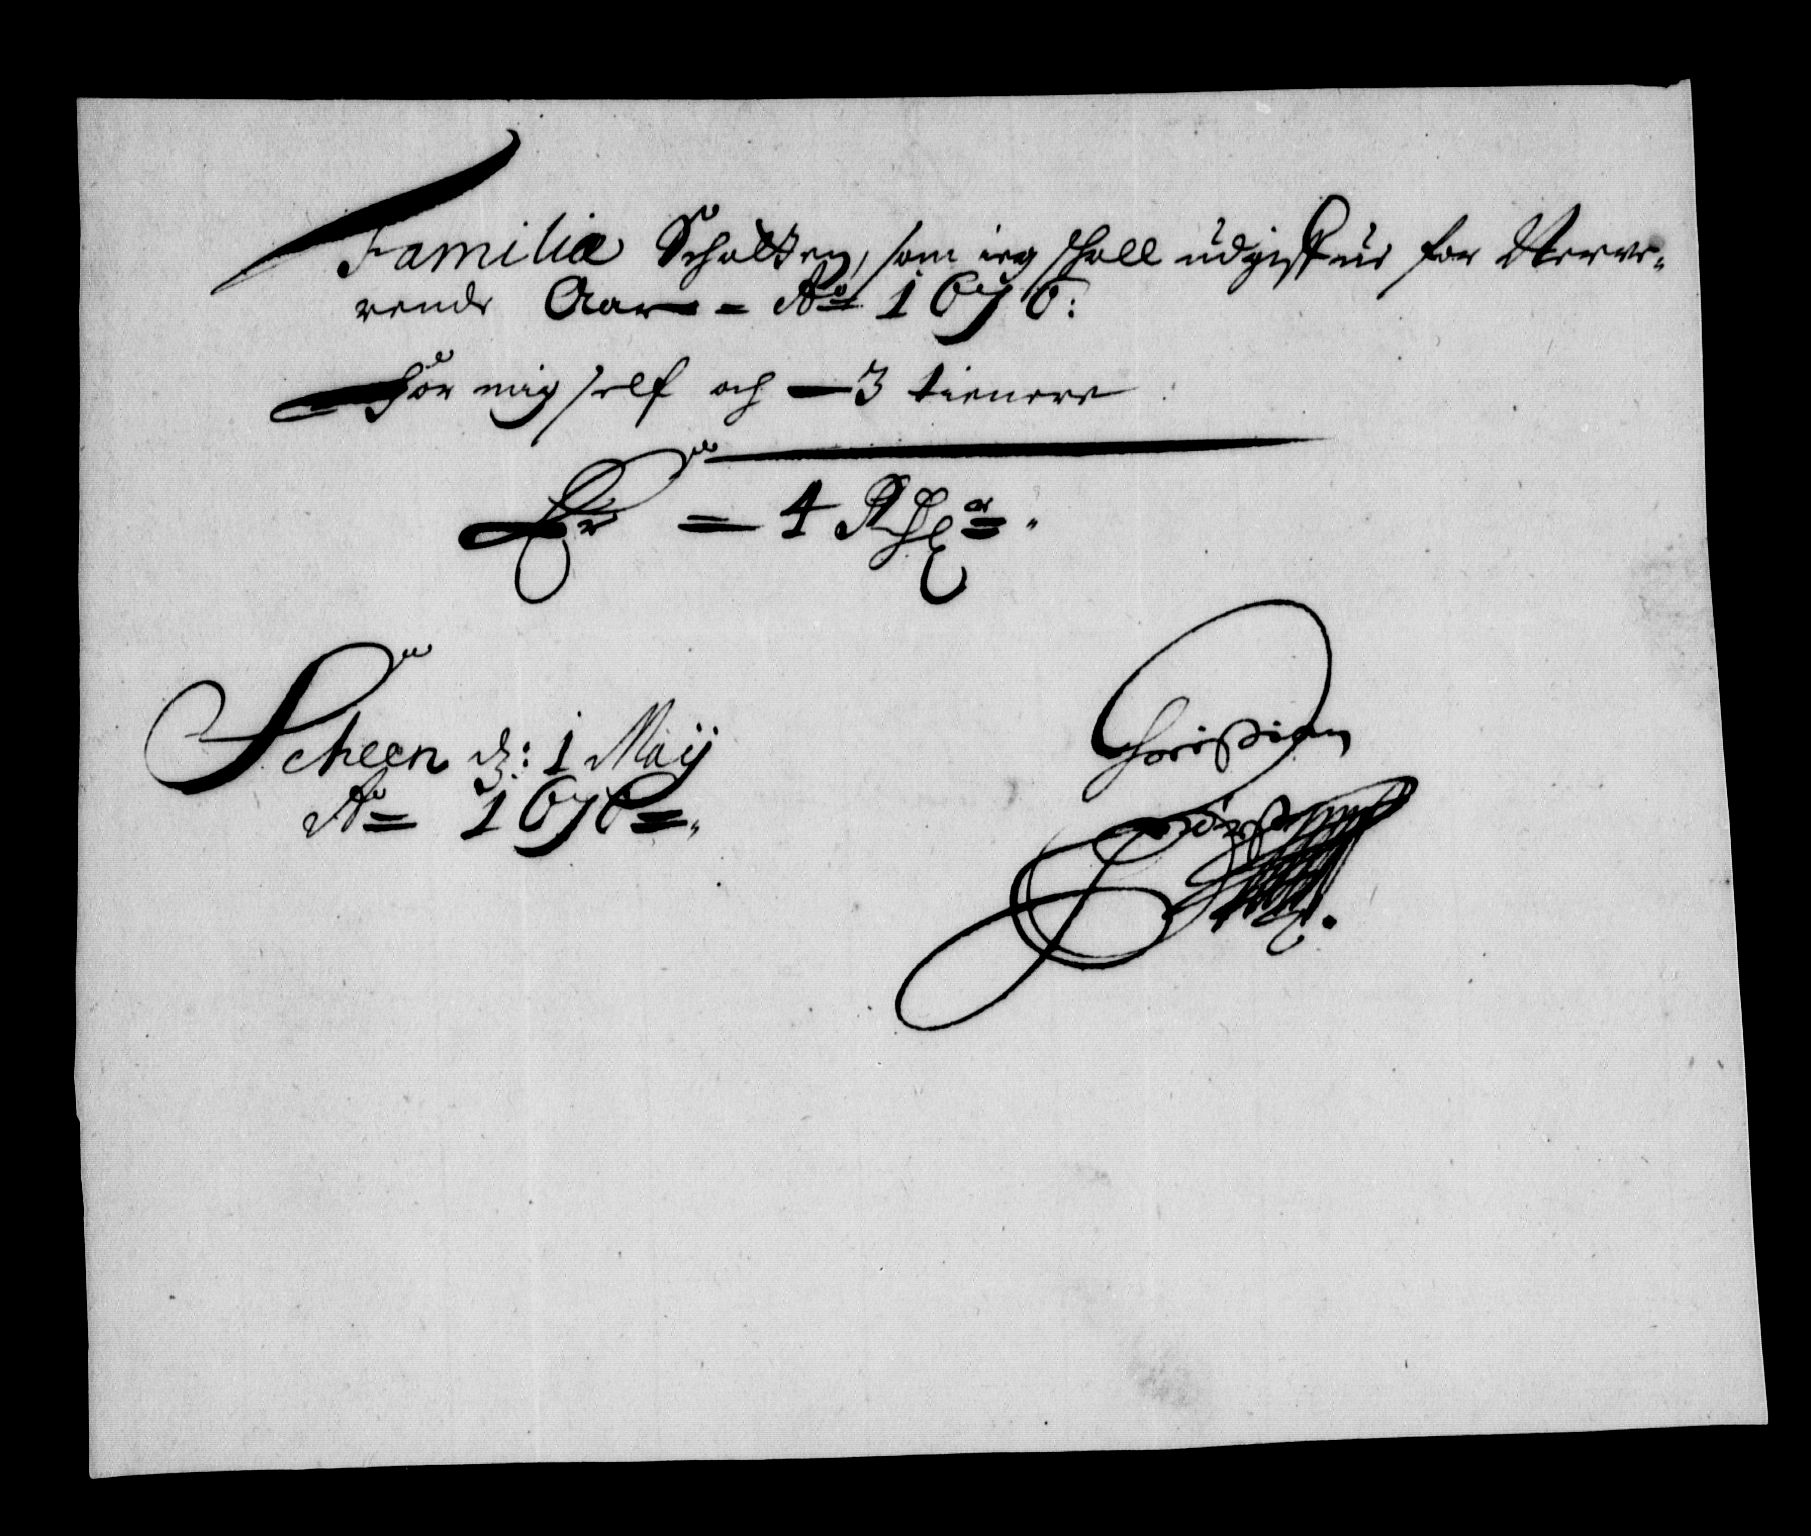 Familiæ Schatten, som ieg schall udgiffue for Nerve-
rende Aar = Ao 1676:
For mig self och — 3 tienere
Er = 4 Rdr
Scheen d: 1 Maij
Ao 1676
Christian